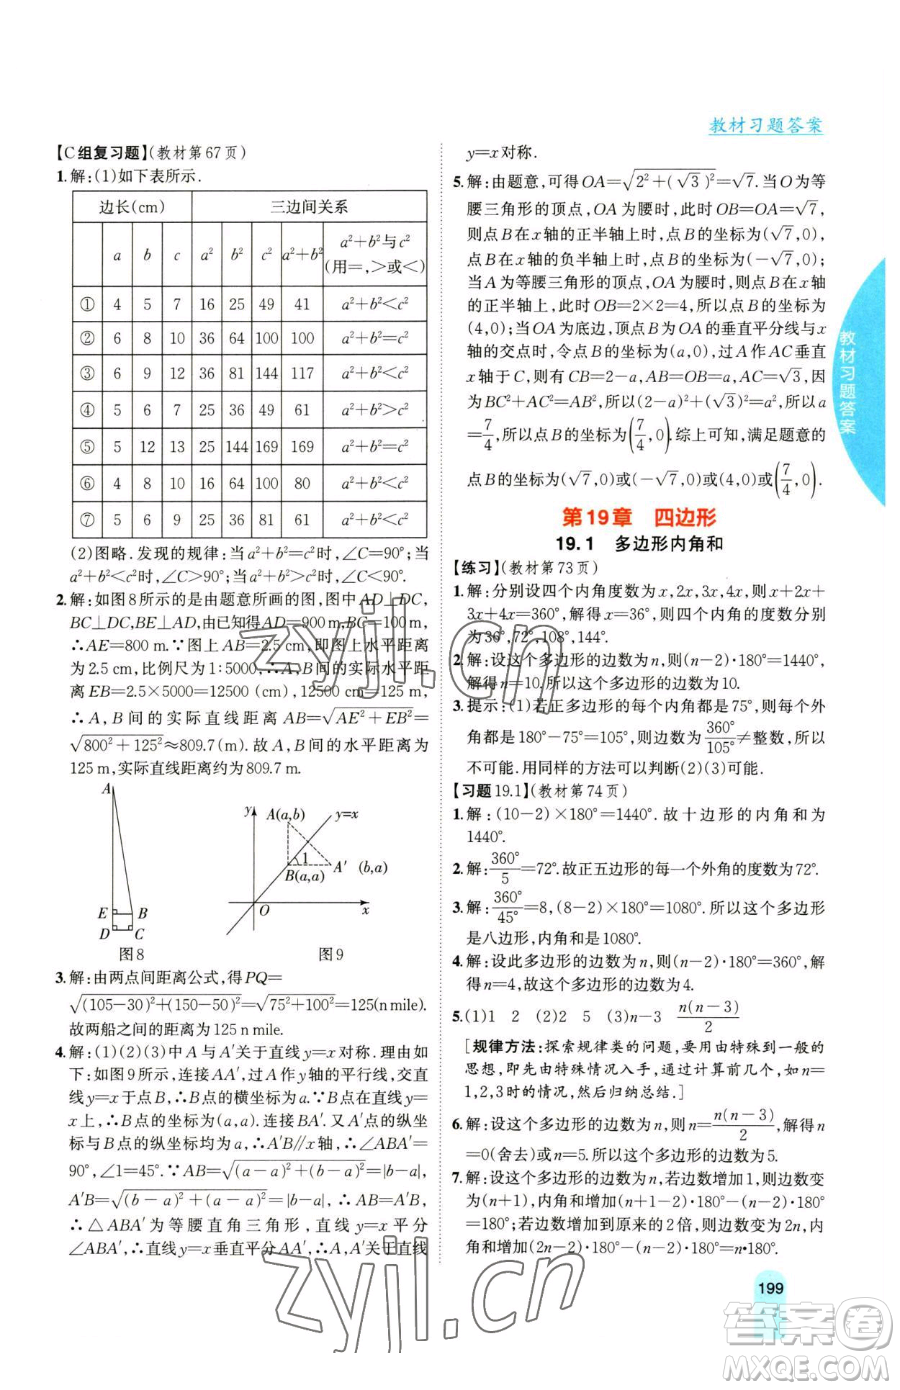 教材习题答案
【C组复习题】(教材第67页)
1.解:(1)如下表所示.
边长(cm) 三边间关系
a b c a² b² c² a²+b² a²+b²与c²(用=,>或<)
① 4 5 7 16 25 49 41 a²+b²<c²
② 6 8 10 36 64 100 100 a²+b²=c²
③ 6 9 12 36 81 144 117 a²+b²<c²
④ 5 6 7 25 36 49 61 a²+b²>c²
⑤ 5 12 13 25 144 169 169 a²+b²=c²
⑥ 4 8 10 16 64 100 80 a²+b²<c²
⑦ 5 6 9 25 36 81 61 a²+b²<c²
(2)图略.发现的规律:当a²+b²=c²时,∠C=90°;当
a²+b²<c²时,∠C>90°;当a²+b²>c²时,∠C<90°.
2.解:如图8所示的是由题意所画的图.图中AD⊥DC,
BC⊥DC,BE⊥AD,由已知得AD=900 m,BC=100 m,
∴AE=800 m.∵图上AB=2.5 cm,即图上水平距离
为2.5 cm,比例尺为1:5000,∴A,B间的实际水平距
离EB=2.5×5000=12500 (cm),12500 cm=125 m,
∴A,B间的实际直线距离AB=√(AE²+EB²)=
√(800²+125²)≈809.7(m).故A,B间的水平距离为
125 m,实际直线距离约为809.7 m.
A
E B
D C
图8
y A(a,b) y=x
1 A′ (b,a)
B(a,a)
O x
图9
3.解:由两点间距离公式,得PQ=
√((105-30)²+(150-50)²)=√(75²+100²)=125(n mile).
故两船之间的距离为125 n mile.
4.解:(1)(2)(3)中A与A′关于直线y=x对称.理由如
下:如图9所示,连接AA′,过A作y轴的平行线,交直
线y=x于点B,∴点B的横坐标为a.∵点B在直线y=
x上,∴B点的坐标为(a,a).连接BA′.又A′点的纵坐
标与B点的纵坐标均为a,∴A′B∥x轴,∴∠ABA′=
90°,∠1=45°.∵AB=√((a-a)²+(b-a)²)=|b-a|,
A′B=√((b-a)²+(a-a)²)=|b-a|,∴AB=A′B,
∴△ABA′为等腰直角三角形,直线y=x平分
∠ABA′,∴直线y=x垂直平分AA′,∴A,A′关于直线
y=x对称.
5.解:由题意,可得OA=√(2²+(√3)²)=√7.当O为等
腰三角形的顶点,OA为腰时,此时OB=OA=√7,
则点B在x轴的正半轴上时,点B的坐标为(√7,0),
点B在x轴的负半轴上时,点B的坐标为(-√7,0);
当A为等腰三角形的顶点,OA为腰时,此时点B在x轴
的正半轴上,此时OB=2×2=4,所以点B的坐标为
(4,0);当OA为底边,顶点B为OA的垂直平分线与x
轴的交点时,令点B的坐标为(a,0),过A作AC垂直
x轴于C,则有CB=2-a,AC=√3,OB=AB=a.
因为BC²+AC²=AB²,所以(2-a)²+(√3)²=a²,所以a
=7/4,所以点B的坐标为(7/4,0).综上可知,满足题意的
点B的坐标为(√7,0)或(-√7,0)或(4,0)或(7/4,0).
第19章 四边形
19.1 多边形内角和
【练习】(教材第73页)
1.解:分别设四个内角度数为x,2x,3x,4x,则x+2x+
3x+4x=360°,解得x=36°,则四个内角的度数分别
为36°,72°,108°,144°.
2.解:设这个多边形的边数为n,则(n-2)·180°=1440°,
解得n=10.所以这个多边形的边数为10.
3.提示:(1)若正多边形的每个内角都是75°,则每个外
角都是180°-75°=105°,因为360°/105°≠整数,所以
不可能.用同样的方法可以判断(2)(3)可能.
【习题19.1】(教材第74页)
1.解:(10-2)×180°=1440°.故十边形的内角和为
1440°.
2.解:360°/5=72°.故正五边形的每一个外角的度数为72°.
3.解:360°/45°=8,(8-2)×180°=1080°.所以这个多边形
是八边形,内角和是1080°.
4.解:设此多边形的边数为n,则(n-2)·180°=360°,解
得n=4,故这个多边形的边数为4.
5.(1)1 2 (2)2 5 (3)n-3 n(n-3)/2
[规律方法:探索规律类的问题,要用由特殊到一般的
思想,即先由特殊情况入手,通过计算或画图,得出n=
1,2,3时的情况,然后归纳总结.]
6.解:设这个多边形的边数为n,则n=n(n-3)/2,解得n
=0(舍去)或n=5.所以这个多边形的边数为5.
7.解:设这个多边形的边数为n,若边数增加1,则边数变
为(n+1),内角和增加(n+1-2)·180°-(n-2)·180°
=180°;若边数增加到原来的2倍,则边数变为2n,内
角和增加(2n-2)·180°-(n-2)·180°=n·180°.
教材习题答案
199
zyjl.cn
zyjl.cn
答案圈
MXQE.COM